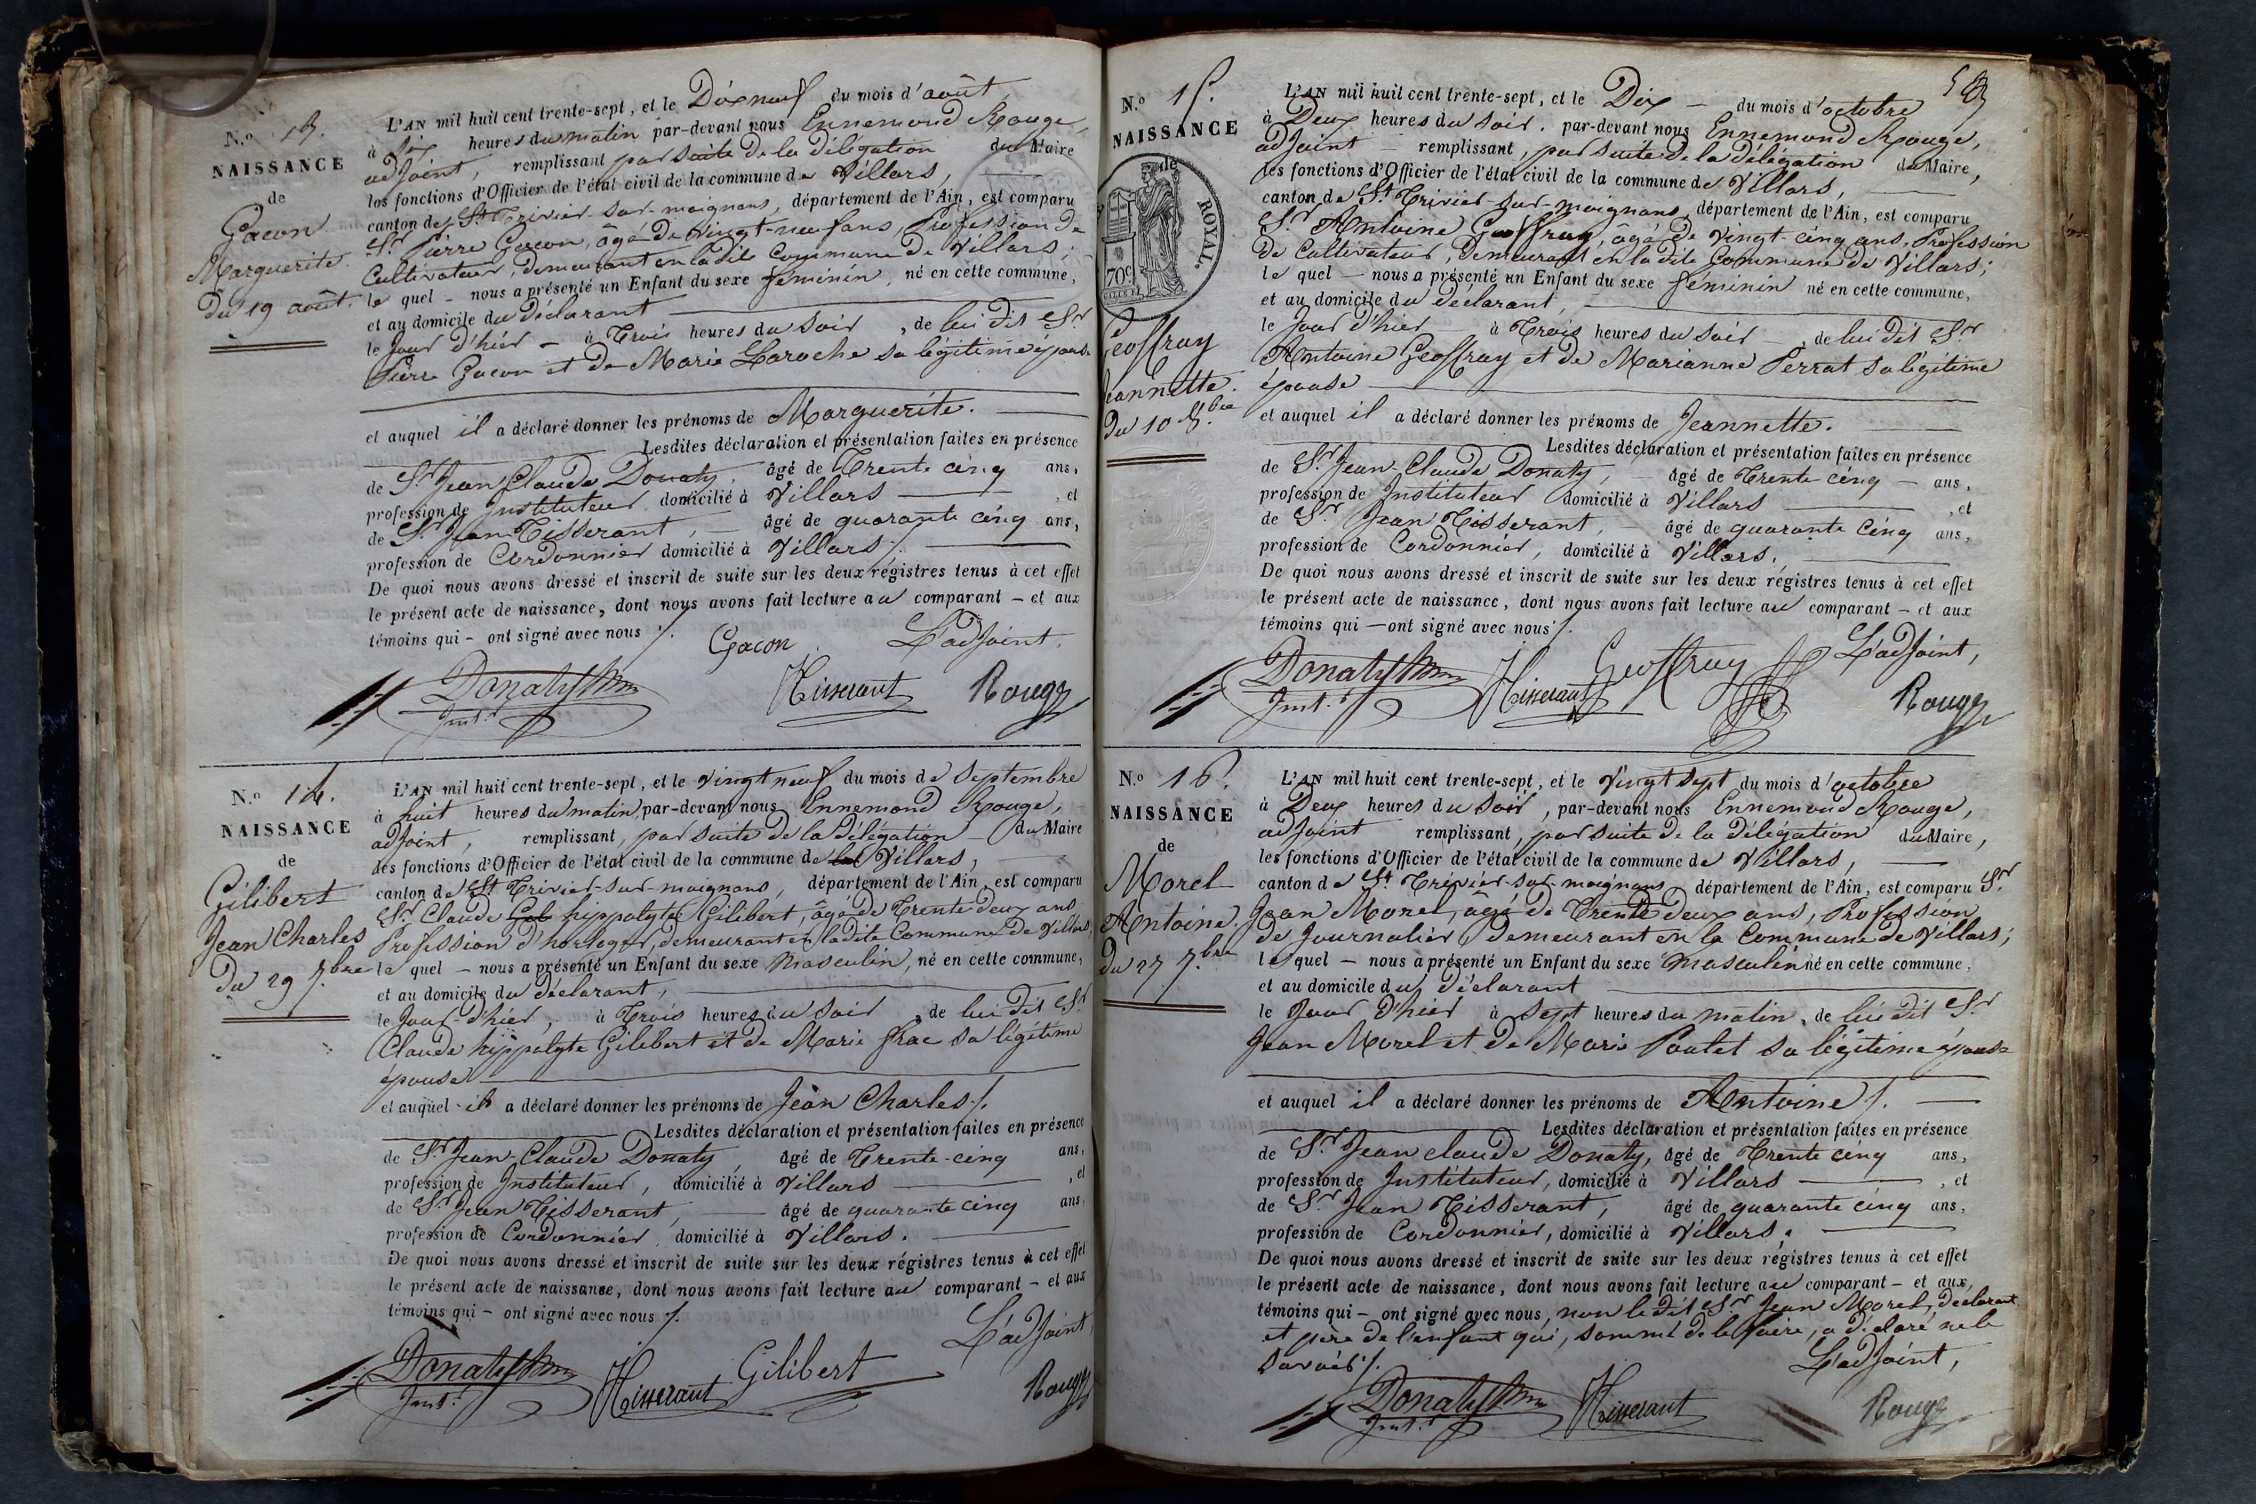 N.o 13.
NAISSANCE
de
Gacon
Marguerite
du 19 août.
L'AN mil huit cent trente-sept, et le Dix neuf du mois d'août,
à dix heures du matin par-devant nous Ennemond Rouge,
adjoint, remplissant par suite de la délégation du Maire
les fonctions d'Officier de l'état civil de la commune de Villars,
canton de St Trivier-sur-moignans, département de l'Ain, est comparu
Sr. Pierre Gacon, âgé de vingt-neuf ans, Profession de
Cultivateur, demeurant en ladite Commune de Villars;
le quel – nous a présenté un Enfant du sexe féminin, né en cette commune,
et au domicile du déclarant
le Jour d'hier – à Trois heures du Soir, de lui dit Sr
Pierre Gacon et de Marie Laroche sa légitime épouse
et auquel il a déclaré donner les prénoms de Marguerite.
Lesdites déclaration et présentation faites en présence
de Sr Jean Claude Donaty, âgé de Trente cinq ans,
profession de Instituteur domicilié à Villars, et
de Sr Jean Tisserant, âgé de quarante cinq ans,
profession de Cordonnier domicilié à Villars /.
De quoi nous avons dressé et inscrit de suite sur les deux régistres tenus à cet effet
le présent acte de naissance, dont nous avons fait lecture au comparant – et aux
témoins qui – ont signé avec nous /.
Gacon L'adjoint.
Donaty Inst. Tisserant Rouge
N.o 14.
NAISSANCE
de
Gilibert
Jean Charles
du 29 7.bre
L'AN mil huit cent trente-sept, et le vingt neuf du mois de Septembre
à huit heures du matin, par-devant nous Ennemond Rouge,
adjoint, remplissant, par suite de la délégation – du Maire
les fonctions d'Officier de l'état civil de la commune de Villars,
canton de St Trivier-sur-moignans, département de l'Ain, est comparu
Sr. Claude hippolyte Gilibert, âgé de Trente deux ans
Profession d'horloger, demeurant en ladite Commune de Villars,
le quel – nous a présenté un Enfant du sexe masculin, né en cette commune,
et au domicile du déclarant,
le Jour d'hier, à Trois heures du Soir, de lui dit Sr
Claude hippolyte Gilibert et de Marie frac sa légitime
épouse
et auquel il a déclaré donner les prénoms de Jean Charles /.
Lesdites déclaration et présentation faites en présence
de Sr Jean-Claude Donaty âgé de Trente-cinq ans,
profession de Instituteur, domicilié à Villars, et
de Sr Jean Tisserant, âgé de quarante cinq ans,
profession de Cordonnier domicilié à Villars.
De quoi nous avons dressé et inscrit de suite sur les deux régistres tenus à cet effet
le présent acte de naissanse, dont nous avons fait lecture au comparant – et aux
témoins qui – ont signé avec nous /.
L'adjoint,
Donaty Inst. Tisserant Gilibert Rouge
N.o 15.
NAISSANCE
de
ROYAL.
70c.
Geoffray
Jeannette.
du 10 8.bre
L'AN mil huit cent trente-sept, et le Dix – du mois d'octobre
à Deux heures du Soir. par-devant nous Ennemond Rouge,
adjoint – remplissant, par suite de la délégation du Maire,
les fonctions d'Officier de l'état civil de la commune de Villars,
canton de St Trivier-sur-moignans, département de l'Ain, est comparu
Sr Antoine Geoffray, âgé de vingt-cinq ans, Profession
de Cultivateur, demeurant en ladite Commune de Villars;
le quel – nous a présenté un Enfant du sexe féminin né en cette commune,
et au domicile du déclarant,
le Jour d'hier à Trois heures du Soir –, de lui dit Sr
Antoine Geoffray et de Marianne Perrat sa légitime
épouse
et auquel il a déclaré donner les prénoms de Jeannette.
Lesdites déclaration et présentation faites en présence
de Sr Jean-Claude Donaty, – âgé de Trente-cinq – ans,
profession de Instituteur domicilié à Villars, et
de Sr Jean Tisserant, – âgé de quarante cinq ans,
profession de Cordonnier, domicilié à Villars.
De quoi nous avons dressé et inscrit de suite sur les deux régistres tenus à cet effet
le présent acte de naissance, dont nous avons fait lecture au comparant – et aux
témoins qui – ont signé avec nous /.
L'adjoint,
Donaty Inst. Tisserant Geoffray Rouge
N.o 16.
NAISSANCE
de
Morel
Antoine.
du 27 7.bre
L'AN mil huit cent trente-sept, et le Vingt Sept du mois d'octobre
à Deux heures du Soir, par-devant nous Ennemond Rouge,
adjoint remplissant, par suite de la délégation du Maire,
les fonctions d'Officier de l'état civil de la commune de Villars,
canton de St Trivier-sur-moignans département de l'Ain, est comparu Sr
Jean Morel, âgé de Trente deux ans, Profession
de Journalier, demeurant en la Commune de Villars;
le quel – nous a présenté un Enfant du sexe masculin né en cette commune,
et au domicile du déclarant
le Jour d'hier à Sept heures du matin, de lui dit Sr
Jean Morel et de Marie Poulet sa légitime épouse
et auquel il a déclaré donner les prénoms de Antoine /.
Lesdites déclaration et présentation faites en présence
de Sr Jean claude Donaty, âgé de Trente cinq ans,
profession de Instituteur, domicilié à Villars, et
de Sr Jean Tisserant, âgé de quarante cinq ans,
profession de Cordonnier, domicilié à Villars.
De quoi nous avons dressé et inscrit de suite sur les deux régistres tenus à cet effet
le présent acte de naissance, dont nous avons fait lecture au comparant – et aux,
témoins qui – ont signé avec nous, non le dit Sr Jean Morel, déclarant
et père de l'enfant qui, sommé de le faire, a déclaré ne le
savoir /.
L'adjoint,
Donaty Inst. Tisserant Rouge